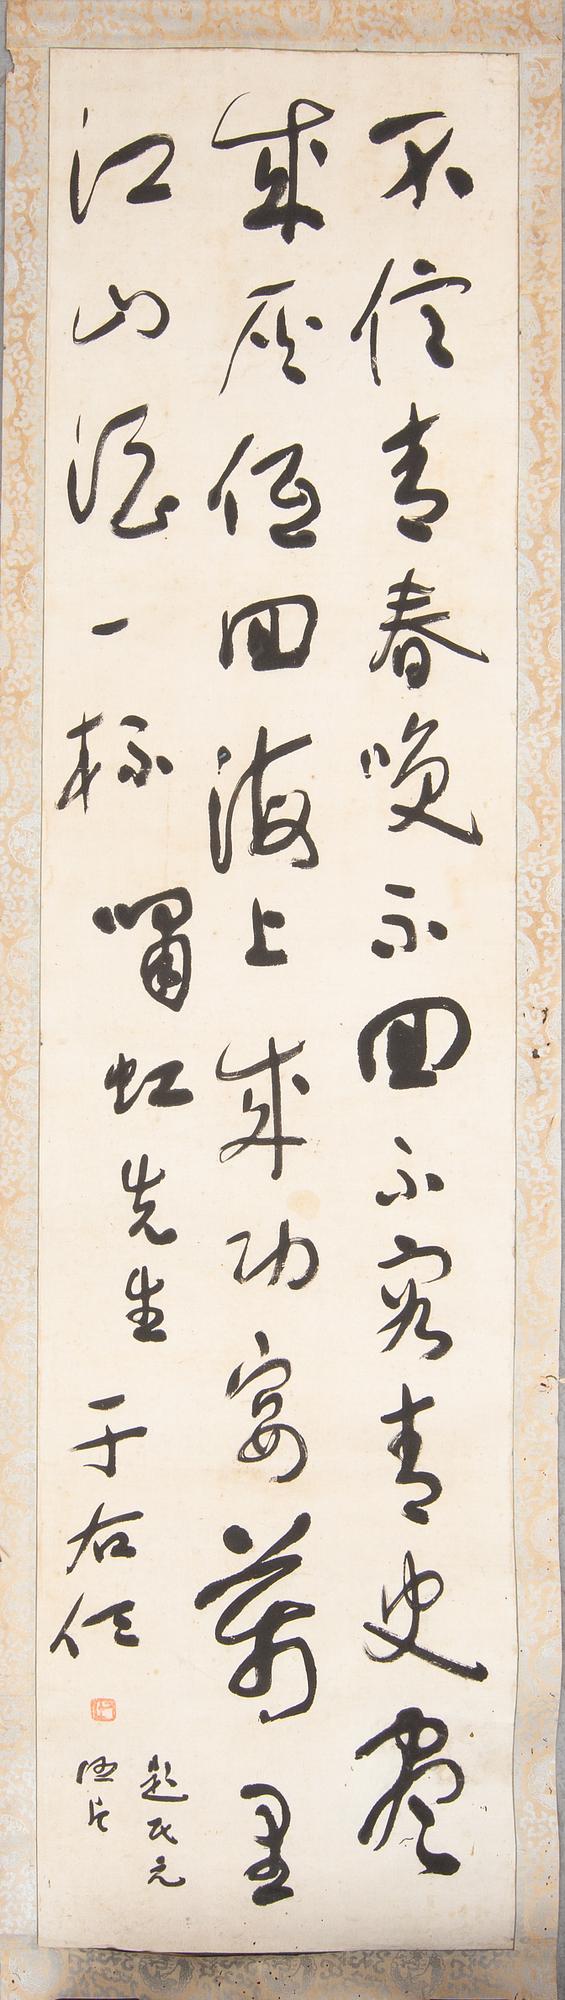 不信青春喚不回不容青史盡
成灰低回海上成功宴萬里
江山酒一杯 嘯虹先生 于右任
題民元
照片